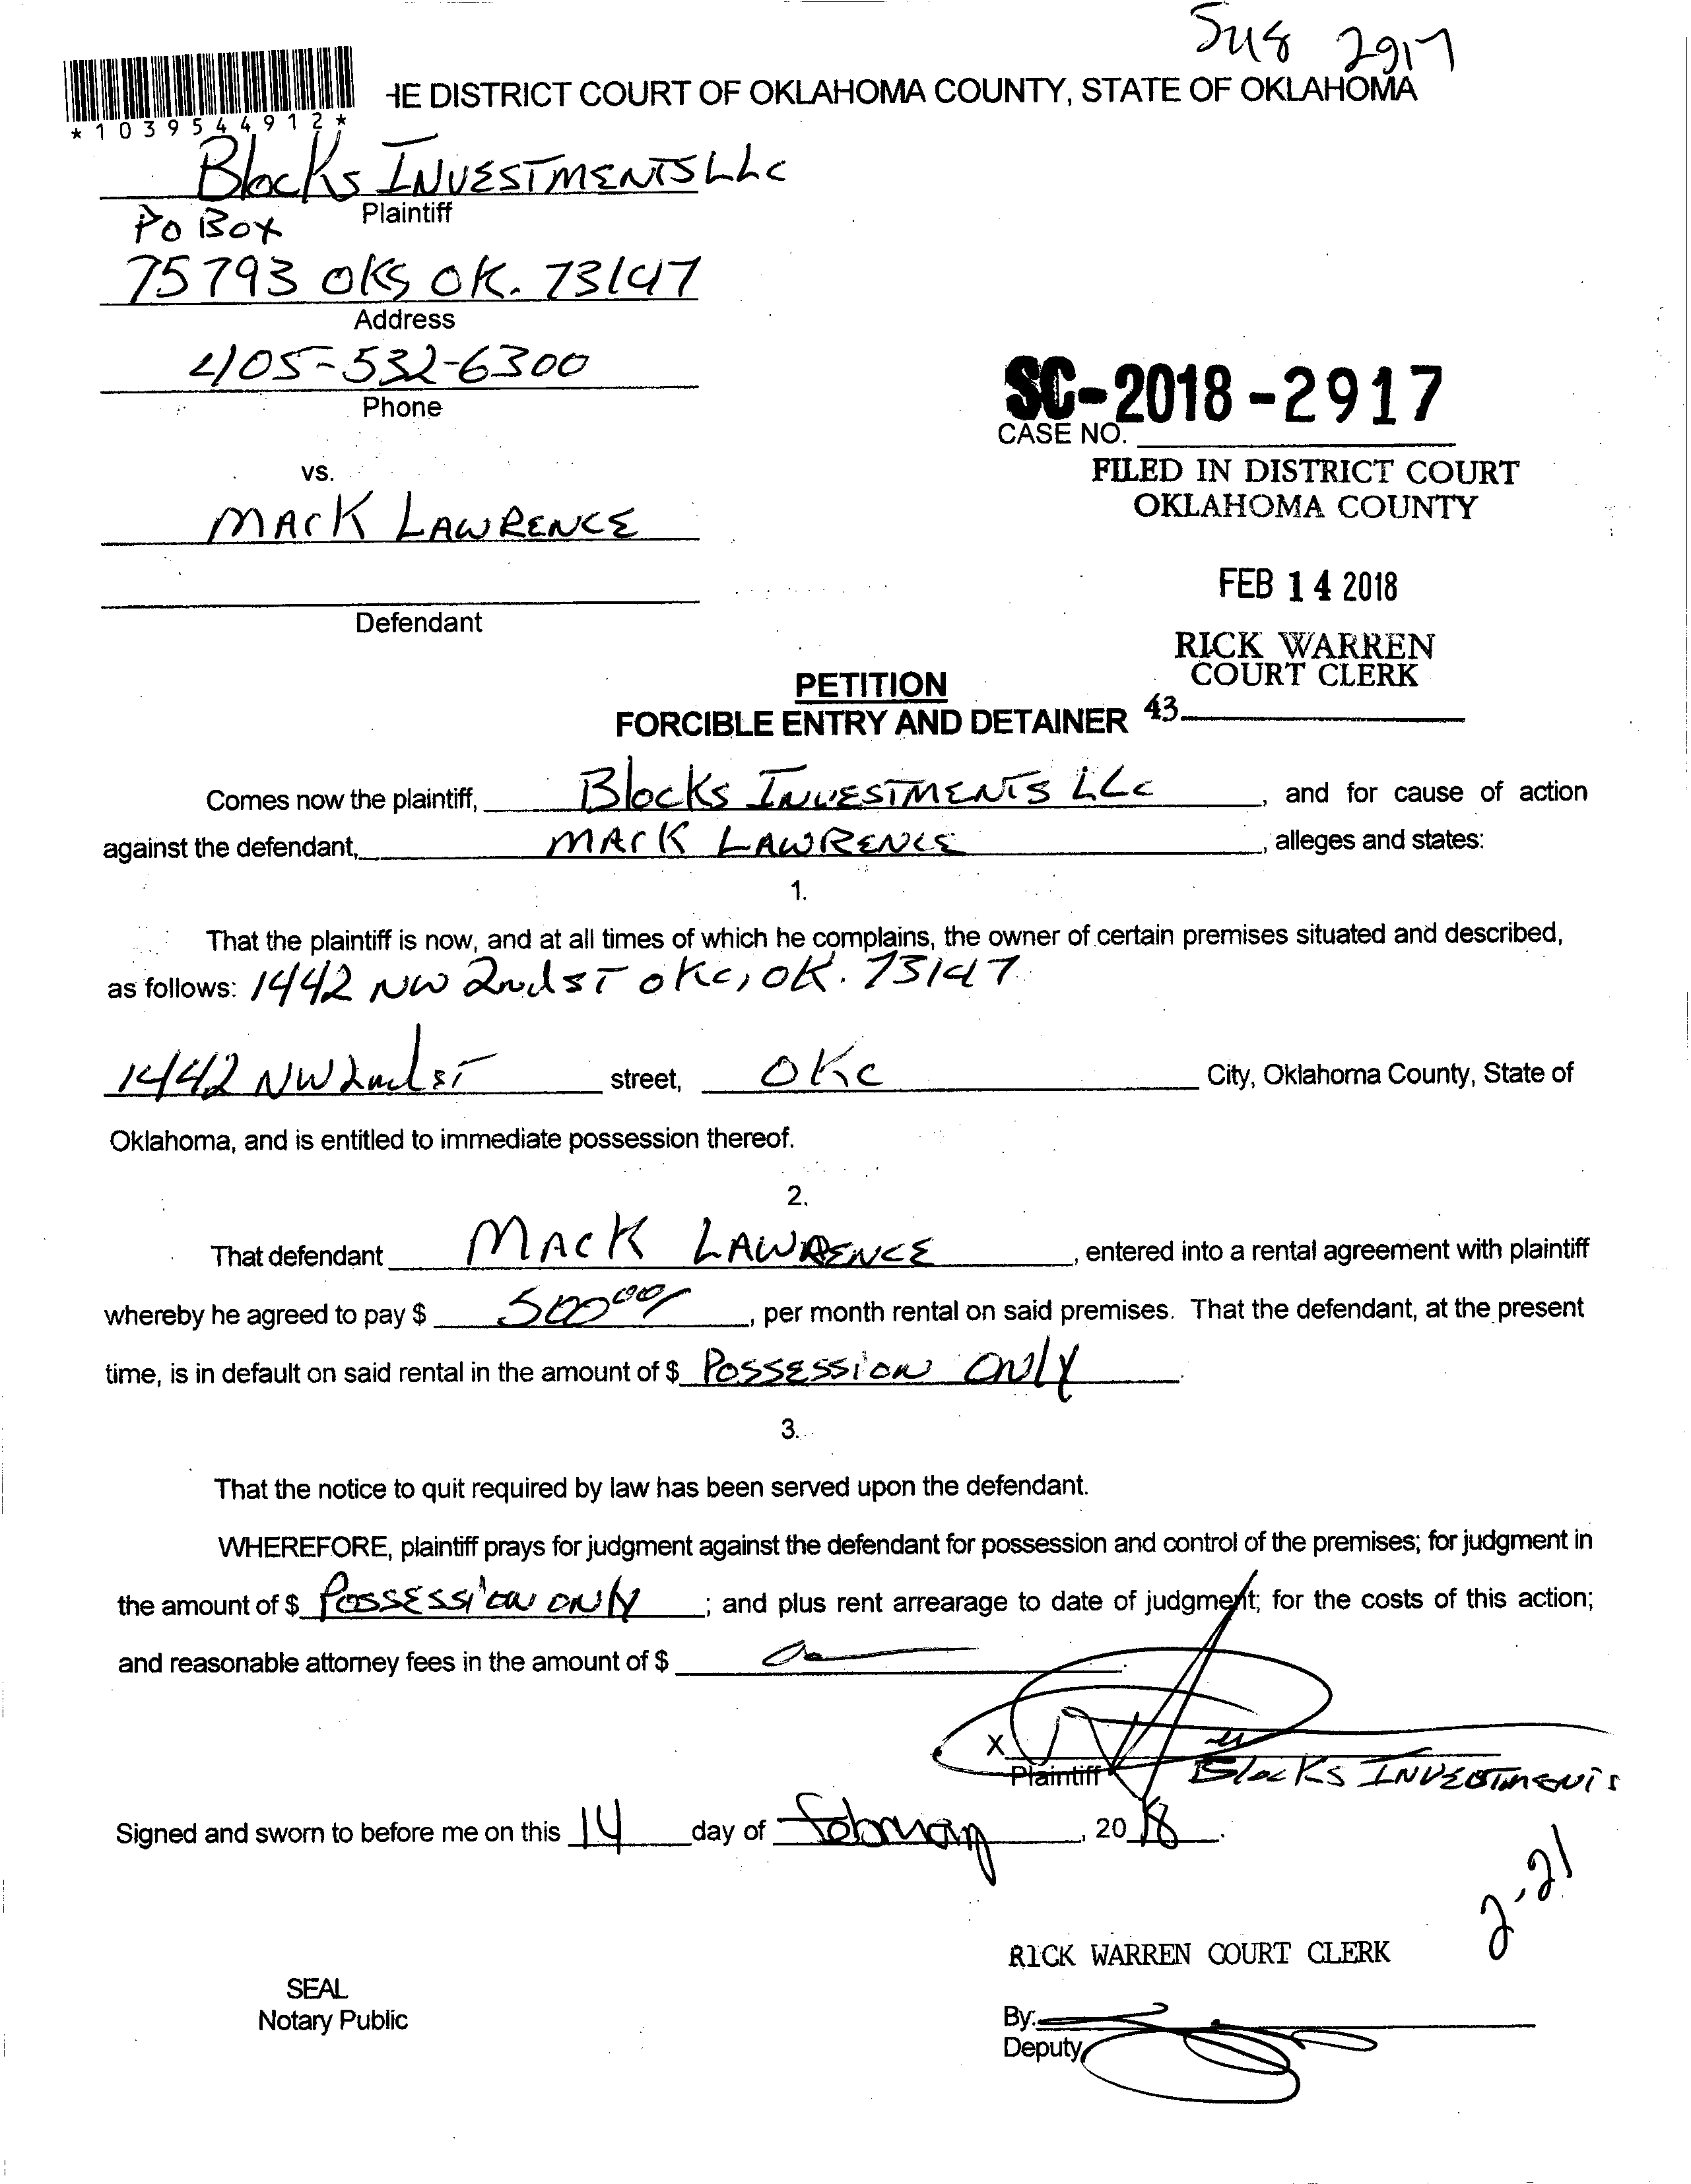 SU8 2917
HE DISTRICT COURT OF OKLAHOMA COUNTY, STATE OF OKLAHOMA
*1039544912*
Blocks INVESTMENTS LLC
Plaintiff
PO BOX
75793 OKC OK. 73147
Address
405-532-6300
Phone
SC-2018-2917
CASE NO.
vs.
FILED IN DISTRICT COURT
OKLAHOMA COUNTY
MArK LAWRENCE
FEB 14 2018
Defendant
RICK WARREN
COURT CLERK
PETITION
FORCIBLE ENTRY AND DETAINER 43
Comes now the plaintiff, Blocks INVESTMENTS LLC, and for cause of action
against the defendant, MArK LAWRENCE, alleges and states:
1.
That the plaintiff is now, and at all times of which he complains, the owner of certain premises situated and described,
as follows: 1442 NW 2nd ST OKC, OK. 73147
1442 NW 2nd ST street, OKC City, Oklahoma County, State of
Oklahoma, and is entitled to immediate possession thereof.
2.
That defendant MArK LAWRENCE, entered into a rental agreement with plaintiff
whereby he agreed to pay $ 500 00/, per month rental on said premises. That the defendant, at the present
time, is in default on said rental in the amount of $ POSSESSiON ONLY.
3.
That the notice to quit required by law has been served upon the defendant.
WHEREFORE, plaintiff prays for judgment against the defendant for possession and control of the premises; for judgment in
the amount of $ POSSESSiON ONLY; and plus rent arrearage to date of judgment; for the costs of this action;
and reasonable attorney fees in the amount of $
X
Plaintiff Blocks INVESTMENTS
Signed and sworn to before me on this 14 day of February, 2018.
2-21
RICK WARREN COURT CLERK
SEAL
Notary Public
By:
Deputy